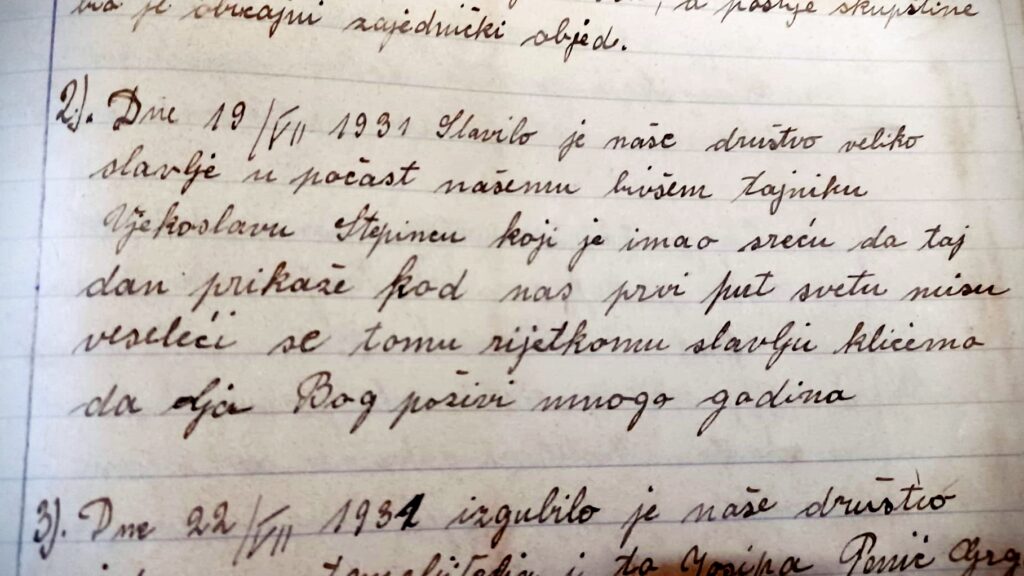 je običajni zajednički objed.
a poslije skupštine
2). Dne 19/VII 1931 Slavilo je naše društvo veliko
slavlje u počast našemu bivšem tajniku
Vjekoslavu Stepincu koji je imao sreću da taj
dan prikaže kod nas prvi put svetu misu
veseleći se tomu rijetkomu slavlju kličemo
da ga Bog poživi mnogo godina
3). Dne 22/VII 1931 izgubilo je naše društvo
i to Josipa